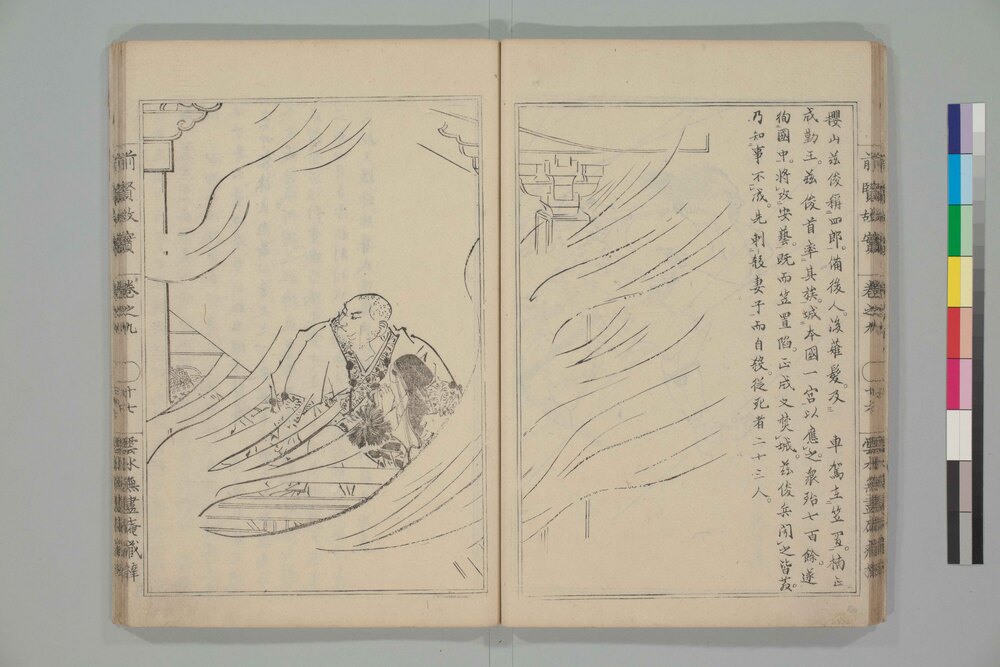 櫻山茲俊稱四郎。備後人。後薙髮。及　車駕在笠置。楠正
成勤王。茲俊首率其族。城本國一宮以應之。衆殆七百餘。遂
徇國中。將攻安藝。既而笠置陷。正成又焚城。茲俊兵聞之皆散。
乃知事不成。先刺殺妻子而自殺。從死者二十三人。
前賢故實
卷之九
廿六
雲水無盡庵藏梓
前賢故實
卷之九
廿七
雲水無盡庵藏梓